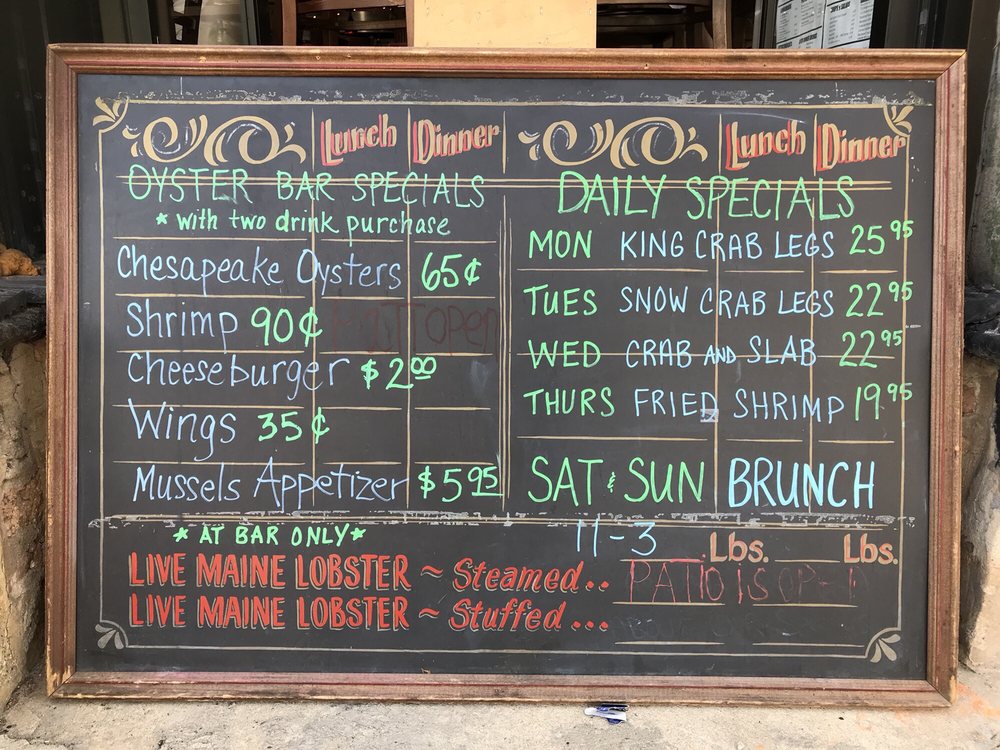 Lunch Dinner
OYSTER BAR SPECIALS
* with two drink purchase
Chesapeake Oysters 65¢
Shrimp 90¢
Cheeseburger $2.00
Wings 35¢
Mussels Appetizer $5.95
* AT BAR ONLY *
Lunch Dinner
DAILY SPECIALS
MON KING CRAB LEGS 25.95
TUES SNOW CRAB LEGS 22.95
WED CRAB AND SLAB 22.95
THURS FRIED SHRIMP 19.95
SAT & SUN BRUNCH
11-3
Lbs. Lbs.
LIVE MAINE LOBSTER ~ Steamed..
PATIO IS OPEN
LIVE MAINE LOBSTER ~ Stuffed...